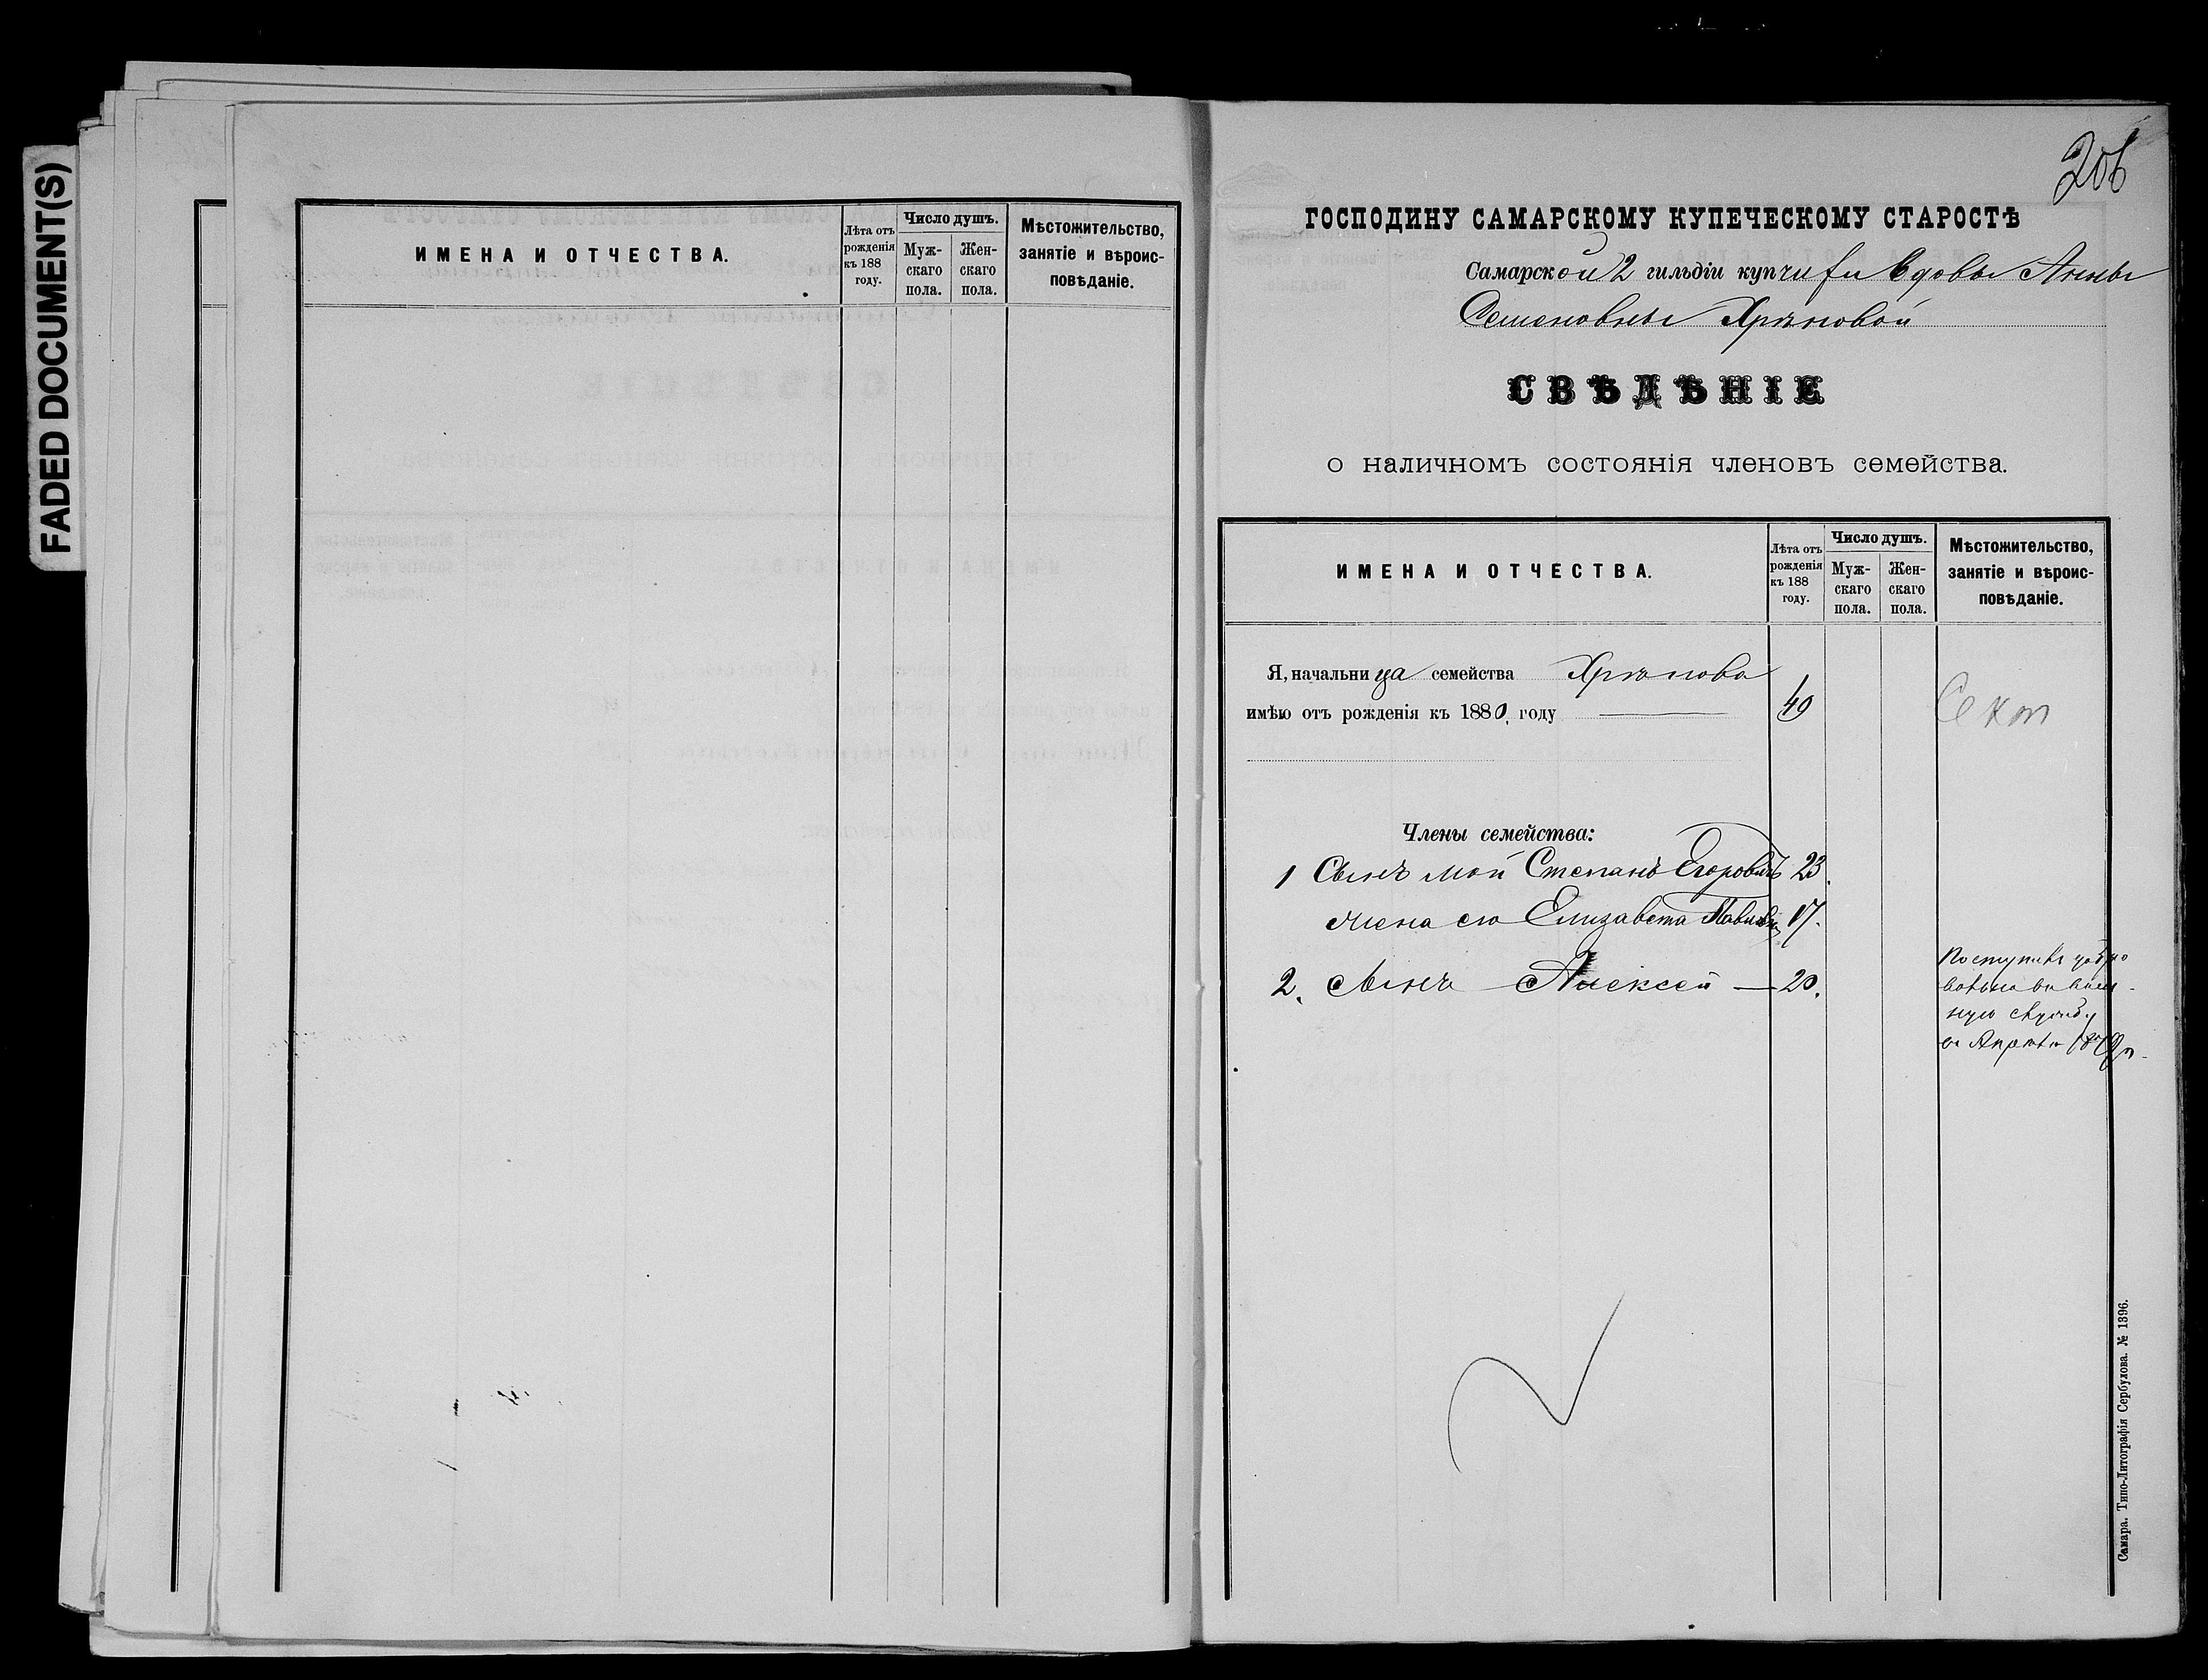 FADED DOCUMENT(S)
ИМЕНА И ОТЧЕСТВА.
Лѣта отъ рожденія къ 188 году.
Число душъ.
Муж-скаго пола.
Жен-скаго пола.
Мѣстожительство, занятіе и вѣроис-повѣданіе.
206
ГОСПОДИНУ САМАРСКОМУ КУПЕЧЕСКОМУ СТАРОСТѢ
Самарской 2 гильдіи купчихи Вдовы Анны
Семеновны Хрѣновой
СВѢДѢНІЕ
о наличномъ состоянія членовъ семейства.
ИМЕНА И ОТЧЕСТВА.
Лѣта отъ рожденія къ 188 году.
Число душъ.
Муж-скаго пола.
Жен-скаго пола.
Мѣстожительство, занятіе и вѣроис-повѣданіе.
Я, начальница семейства Хрѣнова
имѣю отъ рожденія къ 1880. году 49
Члены семейства:
1 Сынъ мой Степанъ Егоровичъ 23.
жена его Елизавета 17.
2. сынъ Алексей — 20.
Поступилъ добро
вольно въ воен-
ную службу
въ Апрѣлѣ 1879 г.
Самара. Типо-Литографія Сербулова. № 1396.